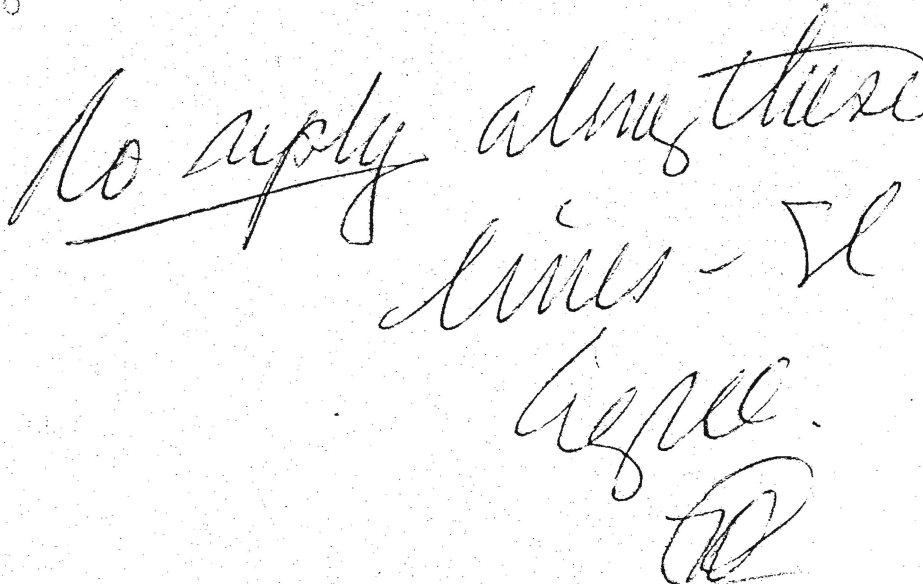 reply along these
lines -
agree.